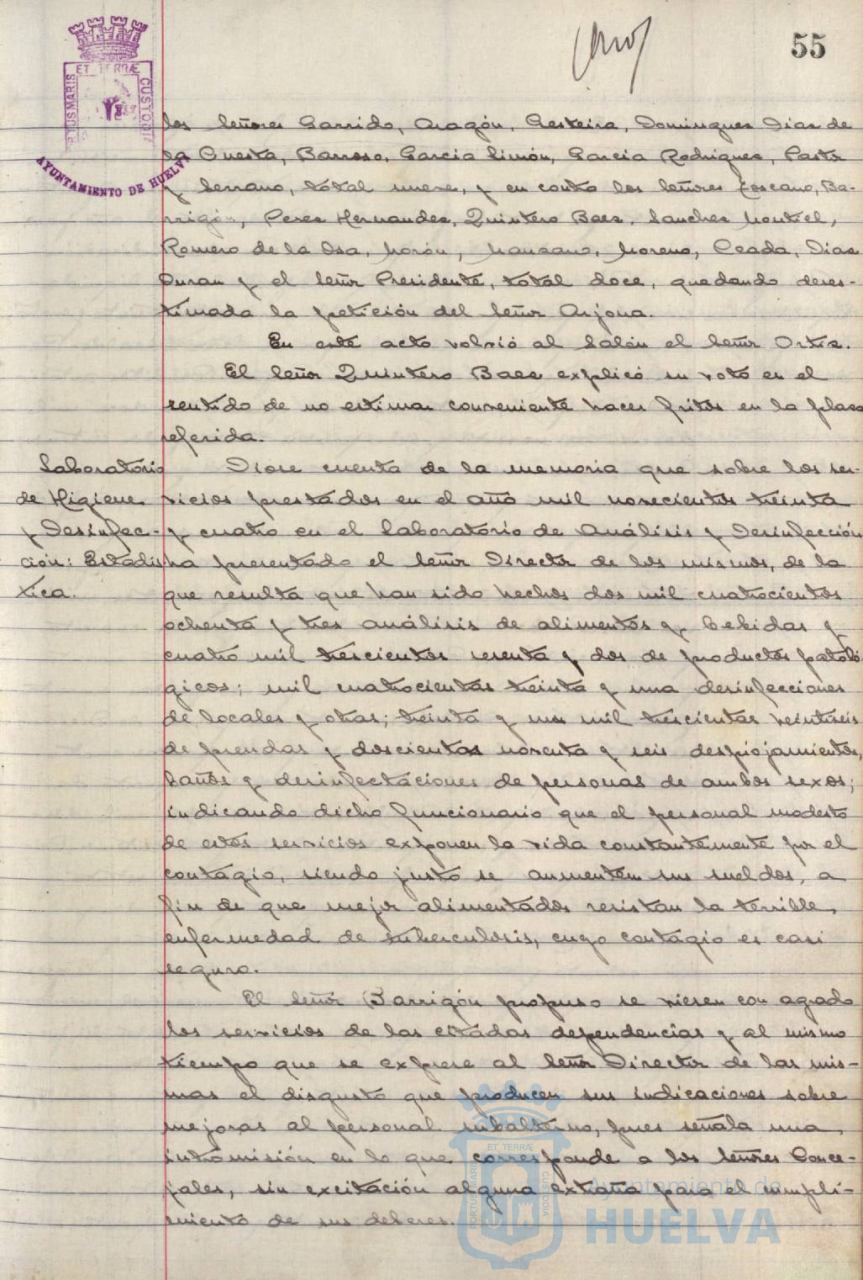 55
PORTUS MARIS ET TERRÆ CUSTODIA
AYUNTAMIENTO DE HUELVA
los señores Garrido, Aragón, Gesteira, Domínguez Díaz de
la Cuesta, Barroso, García Limón, García Rodríguez, Pastor
y Serrano, total nueve, y en contra los señores Toscano, Ba-
rrigón, Perez Hernandez, Quintero Baez, Sanchez Montiel,
Romero de la Osa, Morón, Manzano, Moreno, Ceada, Diaz
Duran y el señor Presidente, total doce, quedando deses-
timada la petición del señor Arjona.
En este acto volvió al Salón el señor Ortiz.
El señor Quintero Baez explicó su voto en el
sentido de no estimar conveniente hacer fritos en la plaza
referida.
Laboratorio
de Higiene
y Desinfec-
ción: Estadís
tica.
Diose cuenta de la memoria que sobre los ser-
vicios prestados en el año mil novecientos treinta
y cuatro en el Laboratorio de Análisis y Desinfección
ha presentado el señor Director de los mismos, de la
que resulta que han sido hechos dos mil cuatrocientos
ochenta y tres análisis de alimentos y bebidas y
cuatro mil trescientos sesenta y dos de productos patoló
gicos; mil cuatrocientas treinta y una desinfecciones
de locales y otras; treinta y un mil trescientas veintiseis
de prendas y doscientas noventa y seis despiojamientos,
baños y desinfectaciones de personas de ambos sexos;
indicando dicho funcionario que el personal modesto
de estos servicios exponen la vida constantemente por el
contagio, siendo justo se aumenten sus sueldos, a
fin de que mejor alimentados resistan la terrible
enfermedad de tuberculosis, cuyo contagio es casi
seguro.
El señor Barrigón propuso se viesen con agrado
los servicios de las citadas dependencias y al mismo
tiempo que se exprese al señor Director de las mis-
mas el disgusto que producen sus indicaciones sobre
mejoras al personal subalterno, pues señala una
intromisión en lo que corresponde a los señores Conce-
jales, sin excitación alguna extraña para el cumpli-
miento de sus deberes.
Ayuntamiento de
HUELVA